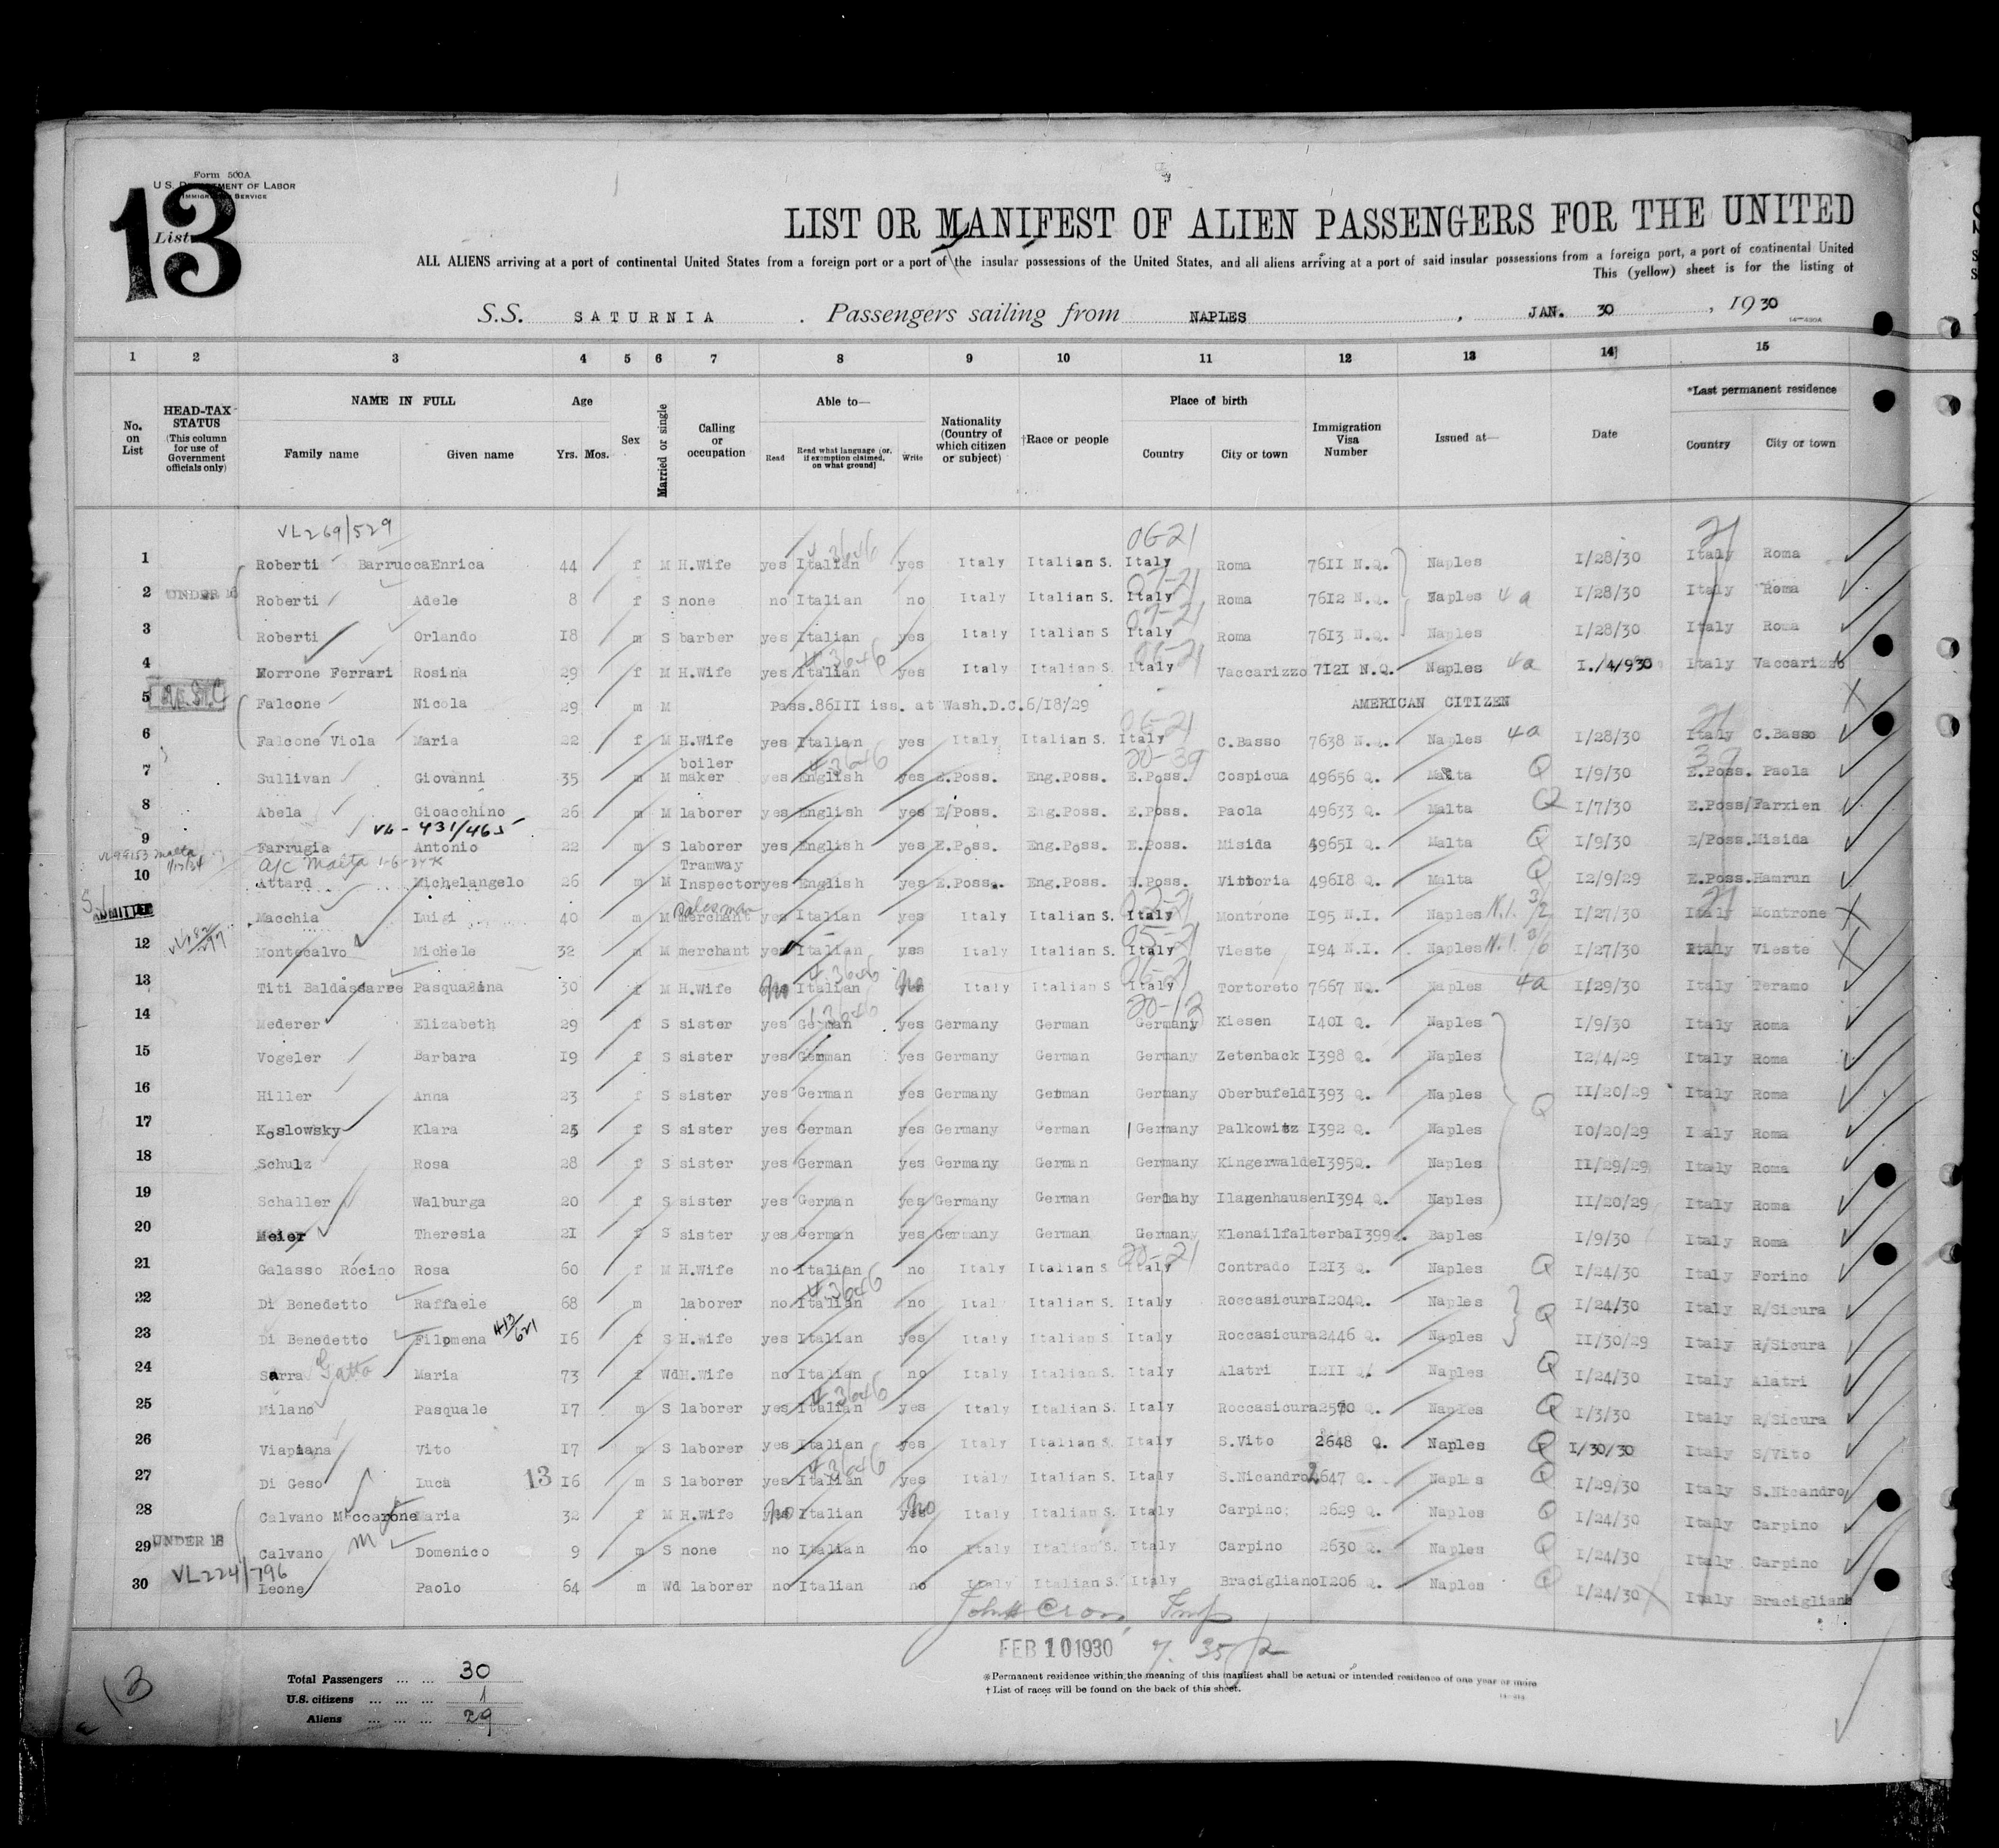 Form 500A
U.S. DEPARTMENT OF LABOR
IMMIGRATION SERVICE
List 13
LIST OR MANIFEST OF ALIEN PASSENGERS FOR THE UNITED
ALL ALIENS arriving at a port of continental United States from a foreign port or a port of the insular possessions of the United States, and all aliens arriving at a port of said insular possessions from a foreign port, a port of continental United
This (yellow) sheet is for the listing of
S.S. SATURNIA . Passengers sailing from NAPLES , JAN. 30 , 1930
1 2 3 4 5 6 7 8 9 10 11 12 13 14 15
No. on List
HEAD-TAX STATUS (This column for use of Government officials only)
NAME IN FULL Family name Given name
Age Yrs. Mos.
Sex
Married or single
Calling or occupation
Able to— Read Read what language (or, if exemption claimed, on what ground) Write
Nationality (Country of which citizen or subject)
†Race or people
Place of birth Country City or town
Immigration Visa Number
Issued at—
Date
*Last permanent residence Country City or town
VL269/529 06-21 21
1 Roberti Barrucca Enrica 44 f M H.Wife yes Italian yes Italy Italian S. Italy Roma 7611 N.Q. Naples 1/28/30 Italy Roma
2 UNDER 16 Roberti Adele 8 f S none no Italian no Italy Italian S. Italy Roma 7612 N.Q. Naples 4a 1/28/30 Italy Roma
3 Roberti Orlando 18 m S barber yes Italian yes Italy Italian S Italy Roma 7613 N.Q. Naples 1/28/30 Italy Roma
4 Morrone Ferrari Rosina 29 f M H.Wife yes Italian yes Italy Italian S. Italy Vaccarizzo 7121 N.Q. Naples 4a 1./4/930 Italy Vaccarizzo
5 Falcone Nicola 29 m M Pass.86III iss. at Wash.D.C.6/18/29 AMERICAN CITIZEN
6 Falcone Viola Maria 22 f M H.Wife yes Italian yes Italy Italian S. Italy C.Basso 7638 N.Q. Naples 4a 1/28/30 Italy C.Basso
7 Sullivan Giovanni 35 m M boiler maker yes English yes E.Poss. Eng.Poss. E.Poss. Cospicua 49656 Q. Malta Q 1/9/30 E.Poss. Paola
8 Abela Gioacchino 26 m M laborer yes English yes E/Poss. Eng.Poss. E.Poss. Paola 49633 Q. Malta Q 1/7/30 E.Poss/Tarxien
VL-431/465
9 Farrugia Antonio 22 m S laborer yes English yes E.Poss. Eng.Poss. E.Poss. Misida 49651 Q. Malta Q 1/9/30 E/Poss.Misida
a/c Malta 1-6-34
10 Attard Michelangelo 26 m M Tramway Inspector yes English yes E.Poss. Eng.Poss. E.Poss. Vittoria 49618 Q. Malta Q 12/9/29 E.Poss.Hamrun
ADMITTED Macchia Luigi 40 m M merchant Salesman yes Italian yes Italy Italian S. Italy Montrone 195 N.I. Naples N.I. 3/2 1/27/30 Italy Montrone
12 Montecalvo Michele 32 m M merchant yes Italian yes Italy Italian S. Italy Vieste 194 N.I. Naples N.I. 3/6 1/27/30 Italy Vieste
13 Titi Baldassarre Pasqualina 30 f M H.Wife No Italian No Italy Italian S Italy Tortoreto 7667 NQ. Naples 4a 1/29/30 Italy Teramo
14 Mederer Elizabeth 29 f S sister yes German yes Germany German Germany Kiesen 1401 Q. Naples 1/9/30 Italy Roma
15 Vogeler Barbara 19 f S sister yes German yes Germany German Germany Zetenback 1398 Q. Naples 12/4/29 Italy Roma
16 Hiller Anna 23 f S sister yes German yes Germany German Germany Oberbufeld 1393 Q. Naples Q 11/20/29 Italy Roma
17 Koslowsky Klara 25 f S sister yes German yes Germany German Germany Palkowitz 1392 Q. Naples 10/20/29 Italy Roma
18 Schulz Rosa 28 f S sister yes German yes Germany German Germany Kingerwalde 1395Q. Naples 11/29/29 Italy Roma
19 Schaller Walburga 20 f S sister yes German yes Germany German Germany Ilagenhausen 1394 Q. Naples 11/20/29 Italy Roma
20 Meier Theresia 21 f S sister yes German yes Germany German Germany Klenailfalterba 1399Q. Naples 1/9/30 Italy Roma
21 Galasso Rocino Rosa 60 f M H.Wife no Italian no Italy Italian S Italy Contrado 1213 Q. Naples Q 1/24/30 Italy Forino
22 Di Benedetto Raffaele 68 m laborer no Italian no Ital Italian S. Italy Roccasicura 1204Q. Naples Q 1/24/30 Italy R/Sicura
23 Di Benedetto Filomena 413/621 16 f S H.wife yes Italian yes Italy Italian S. Italy Roccasicura 2446 Q. Naples 11/30/29 Italy R/Sicura
24 Sarra Gatta Maria 73 f Wd H.Wife no Italian no Italy Italian S. Italy Alatri 1211 Q. Naples Q 1/24/30 Italy Alatri
25 Milano Pasquale 17 m S laborer yes Italian yes Italy Italian S. Italy Roccasicura 2570 Q. Naples Q 1/3/30 Italy R/Sicura
26 Viapiana Vito 17 m S laborer yes Italian yes Italy Italian S. Italy S.Vito 2648 Q. Naples Q 1/30/30 Italy S/Vito
27 Di Geso Luca 13 16 m S laborer yes Italian yes Italy Italian S. Italy S.Nicandro 2647 Q. Naples Q 1/29/30 Italy S.Nicandro
28 Calvano Maccarone Maria 32 f M H.Wife No Italian No Italy Italian S. Italy Carpino 2629 Q. Naples Q 1/24/30 Italy Carpino
29 UNDER 16 Calvano M Domenico 9 m S none no Italian no Italy Italian S. Italy Carpino 2630 Q. Naples Q 1/24/30 Italy Carpino
VL224/796
30 Leone Paolo 64 m Wd laborer no Italian no Italy Italian S. Italy Bracigliano 1206 Q. Naples Q 1/24/30 Italy Bracigliano
FEB 10 1930
Total Passengers ... ... 30
U.S. citizens ... ... ... 1
Aliens ... ... ... 29
※Permanent residence within the meaning of this manifest shall be actual or intended residence of one year or more
†List of races will be found on the back of this sheet.